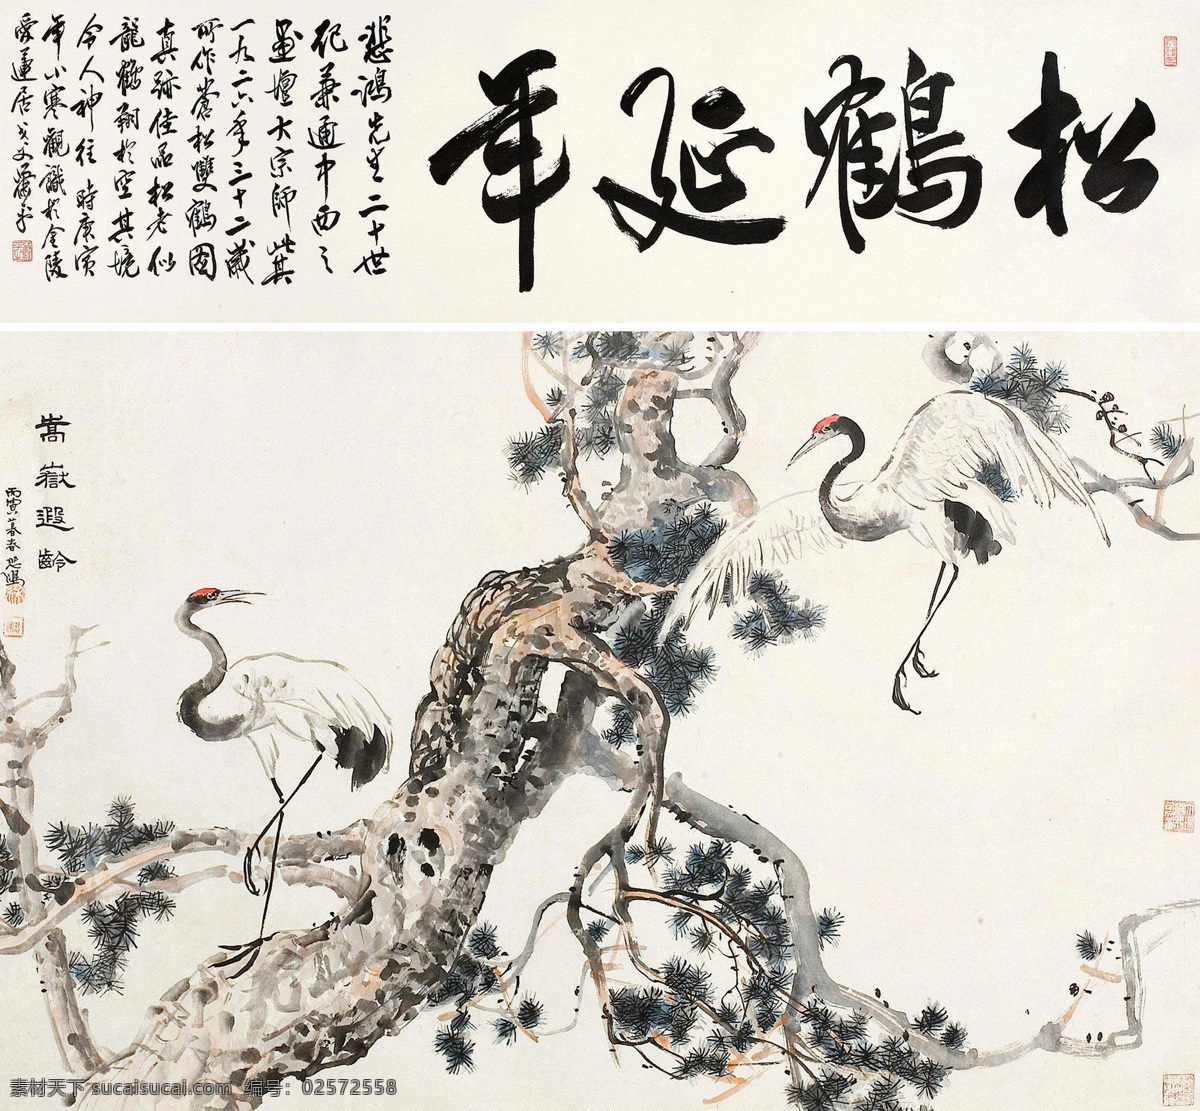 松鶴延年
悲鴻先生二十世
紀兼通中西之
畫壇大宗師此其
一九二六年三十二歲
所作蒼松雙鶴圖
真跡佳品松老似
龍鶴翔於空其境
令人神往時庚寅
年小寒觀識於金陵
愛蓮居戈父蕭平
嵩嶽遐齡
丙寅暮春悲鴻
素材天下 sucaisucai.com 编号：02572558